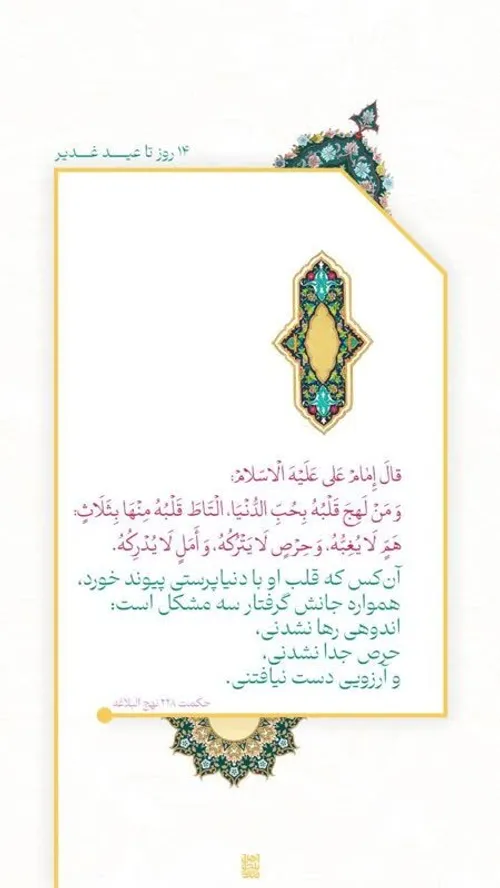 ۱۴ روز تا عیــد غــدیر
قالَ إِمٰامْ عَلی عَلَیْهَ الْاسّلامْ:
وَ مَنْ لَهِجَ قَلْبُهُ بِحُبِّ الدُّنْيَا، الْتَاطَ قَلْبُهُ مِنْهَا بِثَلَاثٍ:
هَمٍّ لَا يُغِبُّهُ، وَ حِرْصٍ لَا يَتْرُكُهُ، وَ أَمَلٍ لَا يُدْرِكُهُ.
آن‌کس که قلب او با دنیاپرستی پیوند خورد،
همواره جانش گرفتار سه مشکل است:
اندوهی رها نشدنی،
حرص جدا نشدنی،
و آرزویی دست نیافتنی.
حکمت ۲۲۸ نهج البلاغه